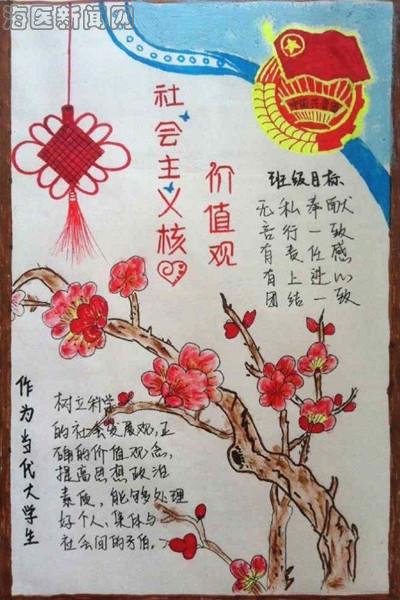 海医新闻网
社会主义核
价值观
班级目标
无私奉献
言行一致
有责任感
有上进心
团结一致
作为当代大学生
树立科学
的社会发展观,正
确的价值观念,
提高思想政治
素质,能够处理
好个人、集体与
社会间的